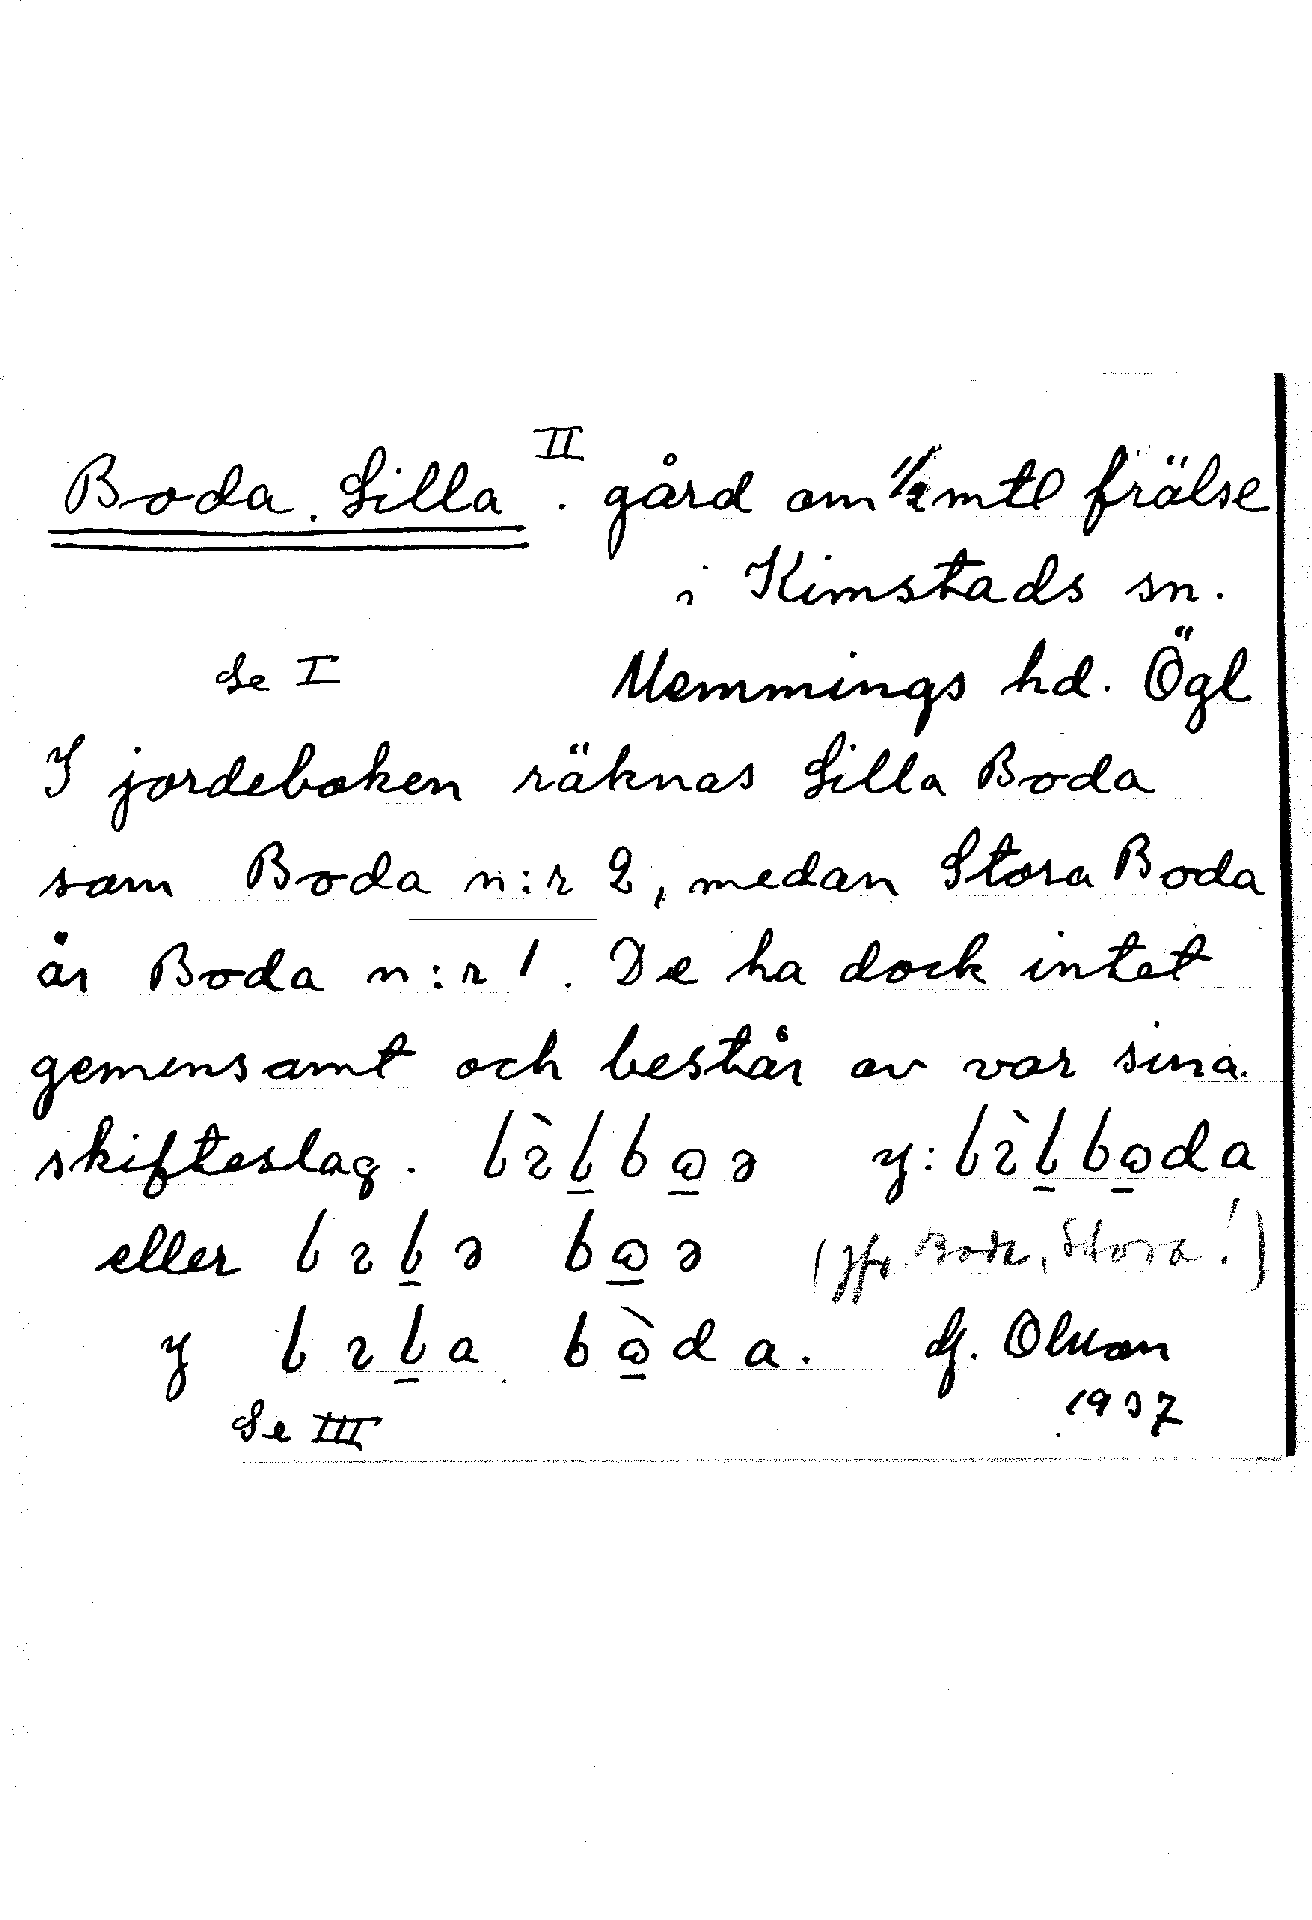 Boda, Lilla II. gård om 1/2 mtl frälse
i Kimstads sn.
Se I Memmings hd. Ögl
I jordeboken räknas Lilla Boda
som Boda n:r 2, medan Stora Boda
är Boda n:r 1. De ha dock intet
gemensamt och består av var sina
skifteslag.
eller (jfr Boda, Stora!)
y
Se III 1937